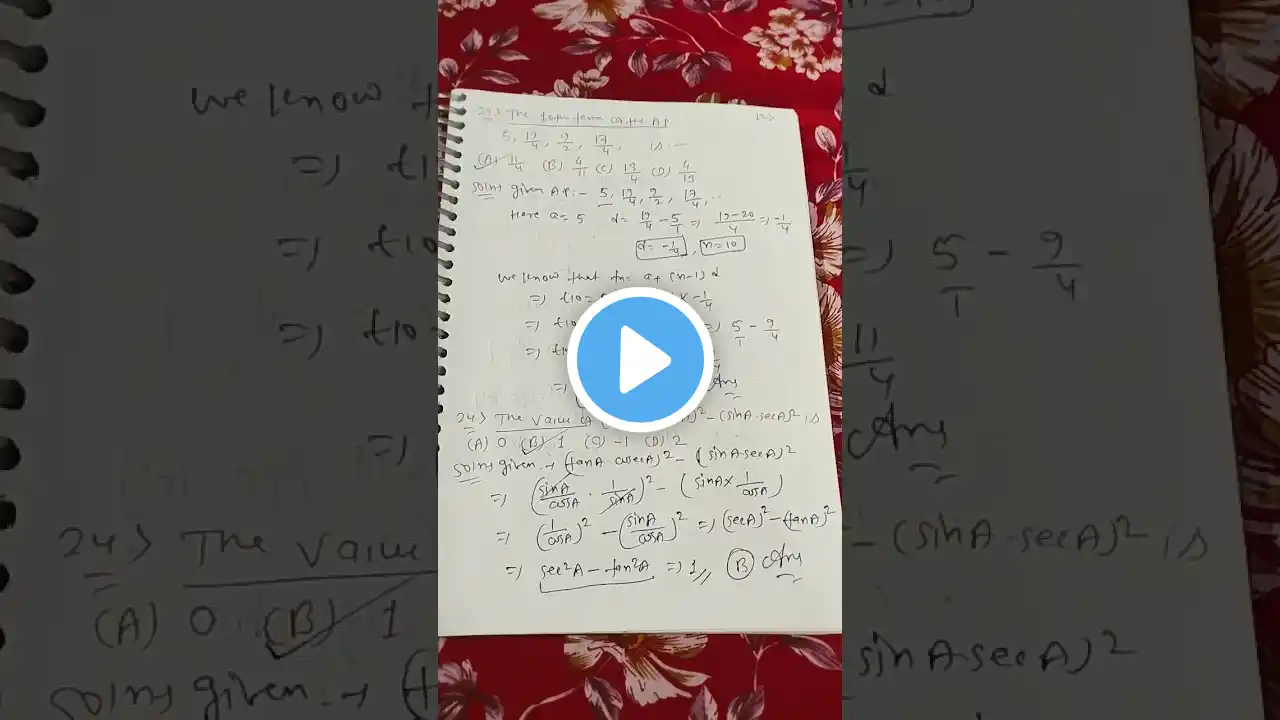 23> The 10th term of the AP
5, 19/4, 9/2, 17/4, is ...
(A) 11/4 (B) 4/11 (C) 13/4 (D) 4/13
Soln: given AP:- 5, 19/4, 9/2, 17/4, ..
Here a = 5 d = 19/4 - 5/1 => 19-20/4 => -1/4
d = -1/4, n = 10
we know that tn = a + (n-1) d
=> t10 = × -1/4
=> t10 => 5/1 - 9/4
=> t10
=> Ans
24> The value )² - (sinA·secA)² is
(A) 0 (B) 1 (C) -1 (D) 2
Soln: given → (tanA·cosecA)² - (sinA·secA)²
=> (sinA/cosA · 1/sinA)² - (sinA × 1/cosA)
=> (1/cosA)² - (sinA/cosA)² => (secA)² - (tanA)²
=> sec²A - tan²A => 1 (B) Ans